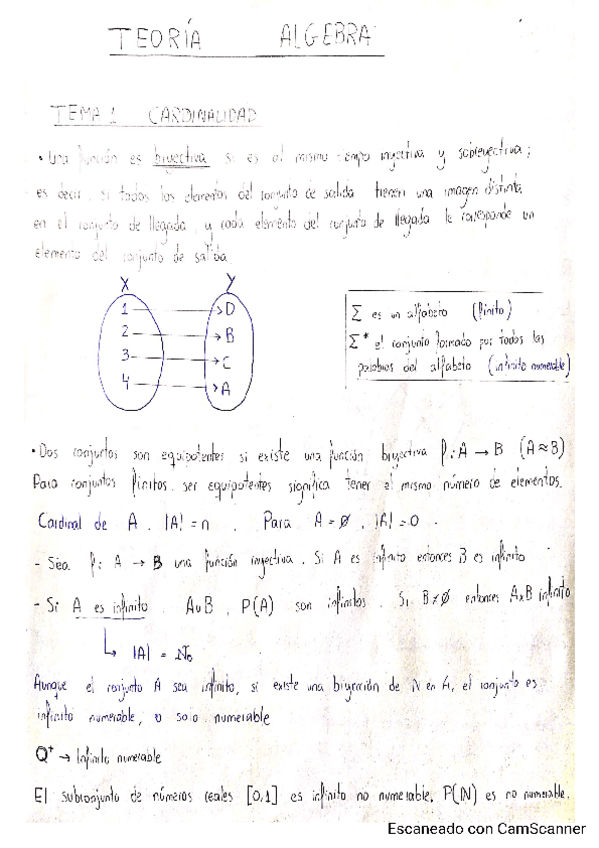 TEORÍA ALGEBRA
TEMA 1 CARDINALIDAD
• Una función es biyectiva si es al mismo tiempo inyectiva y sobreyectiva;
es decir, si todos los elementos del conjunto de salida tienen una imagen distinta
en el conjunto de llegada, y cada elemento del conjunto de llegada le corresponde un
elemento del conjunto de salida
X Y
1 → D
2 → B
3 → C
4 → A
Σ es un alfabeto (finito)
Σ* el conjunto formado por todas las
palabras del alfabeto (infinito numerable)
• Dos conjuntos son equipotentes si existe una función biyectiva f: A → B (A ≈ B)
Para conjuntos finitos, ser equipotentes significa tener el mismo número de elementos.
Cardinal de A, |A| = n. Para A = ∅, |A| = 0.
- Sea f: A → B una función inyectiva. Si A es infinito entonces B es infinito
- Si A es infinito, A∪B, P(A) son infinitos. Si B ≠ ∅ entonces AxB infinito
↳ |A| = ℵ₀
Aunque el conjunto A sea infinito, si existe una biyección de N en A, el conjunto es
infinito numerable, o solo numerable
Q⁺ → Infinito numerable
El subconjunto de números reales [0,1] es infinito no numerable. P(N) es no numerable.
Escaneado con CamScanner